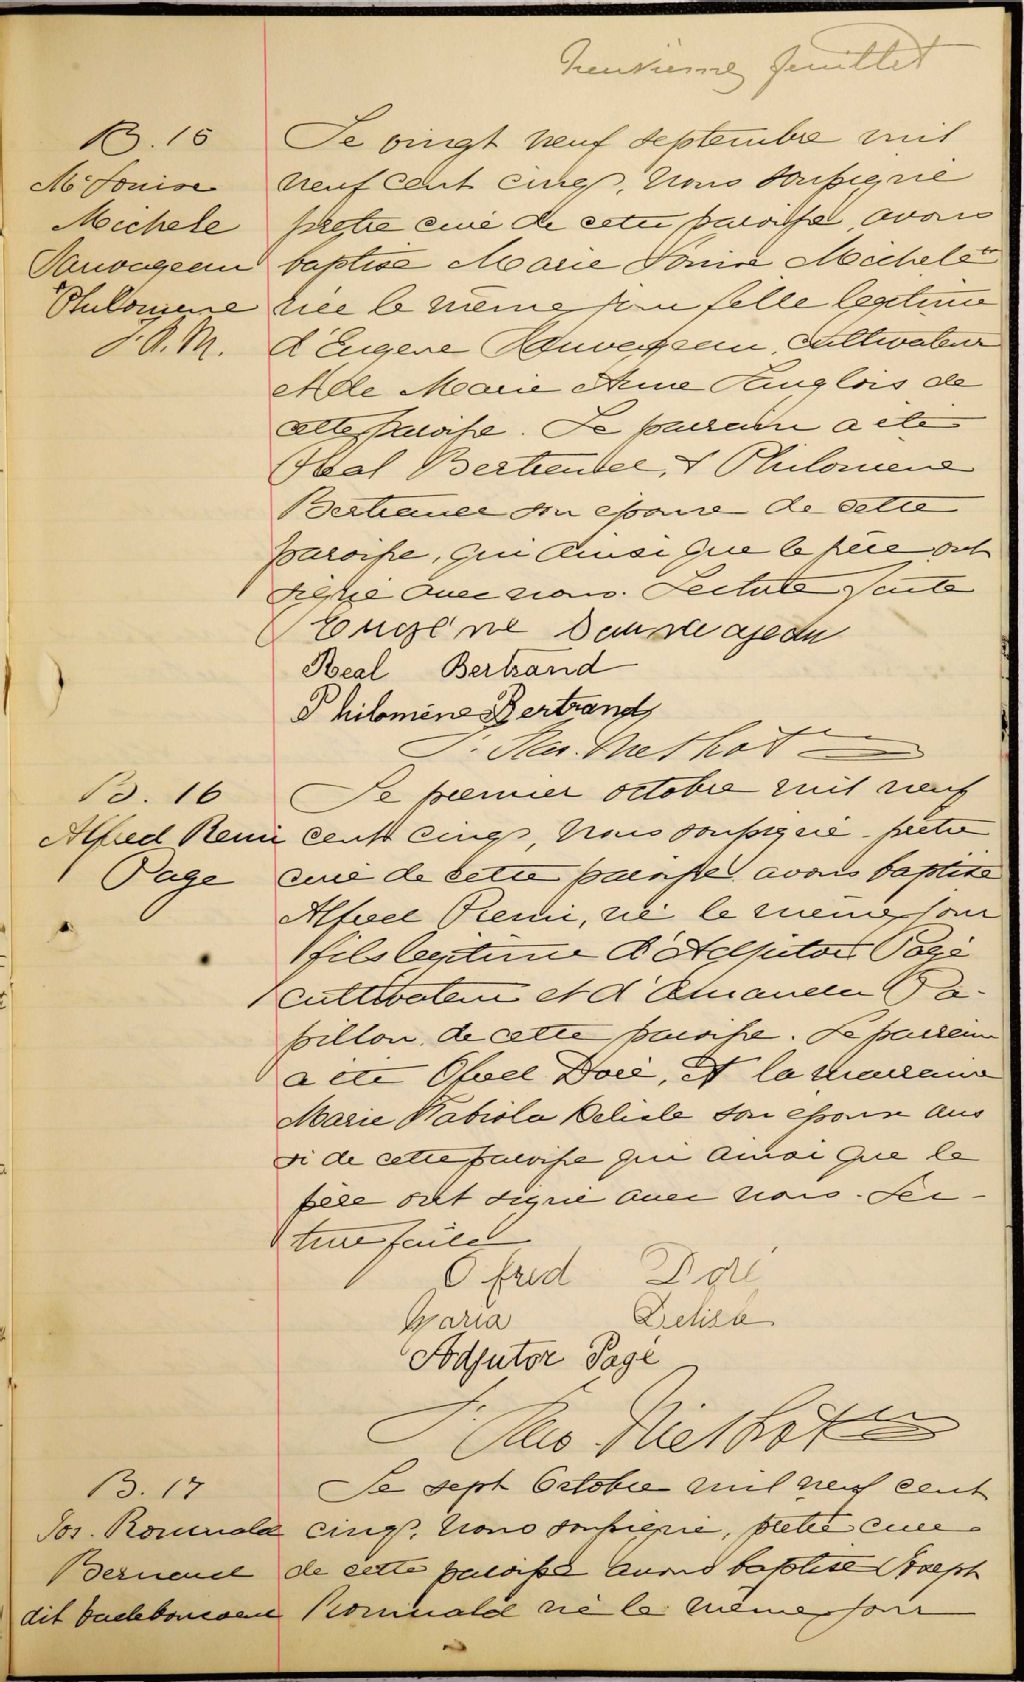 Neuvième feuillet
B. 15
Me Louise
Michele
Sauvageau
+Philomene
J. A. M.
Le vingt neuf septembre mil
neuf cent cinq, nous soussigné
prêtre curé de cette paroisse avons
baptisé Marie Louise Michele +
née le même jour fille legitime
d'Eugene Sauvageau, cultivateur
et de Marie Anne Langlois de
cette paroisse. Le parrain a été
Real Bertrand, & Philomène
Bertrand son épouse de cette
paroisse, qui ainsi que le père ont
signé avec nous. Lecture faite
Eugéne Sauvageau
Real Bertrand
Philoméne Bertrand
B. 16
Alfred Remi
Page
Le premier octobre mil neuf
cent cinq, nous soussigné prêtre
curé de cette paroisse avons baptisé
Alfred Remi, né le même jour
fils legitime d'Adjutor Pagé
cultivateur et d'Amanda Pa-
pillon de cette paroisse. Le parrain
a été Ofred Doré, et la marraine
Marie Fabiola Delisle son épouse aus
si de cette paroisse qui ainsi que le
père ont signé avec nous. Lec-
ture faite
Ofred Doré
Maria Delisle
Adjutor Pagé
B. 17
Jos. Romuald
Bernard
dit
Le sept Octobre mil neuf cent
cinq, nous soussigné, prêtre curé
de cette paroisse avons baptisé Joseph
Romuald né le même jour